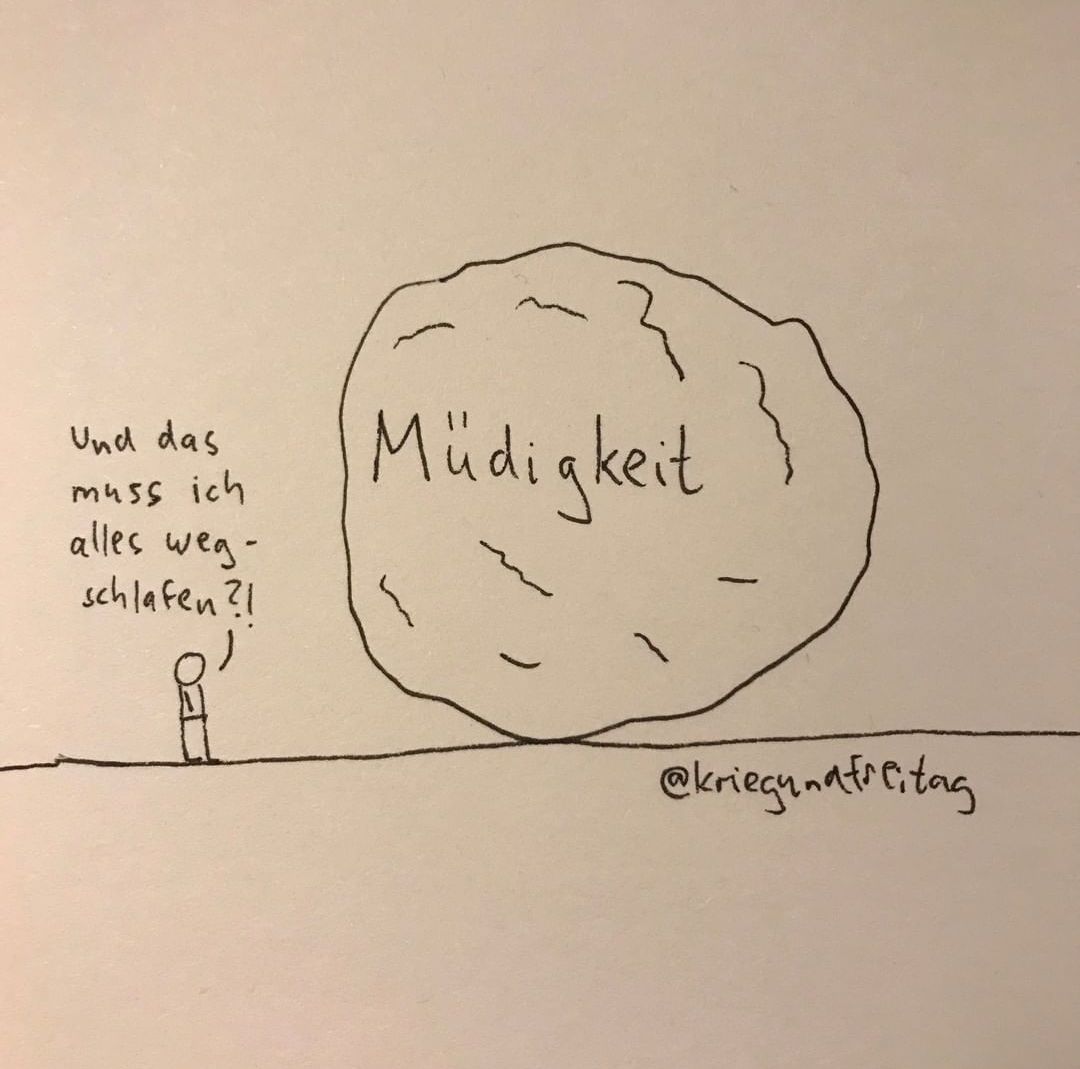 Und das
muss ich
alles weg-
schlafen?!
Müdigkeit
@kriegundfreitag